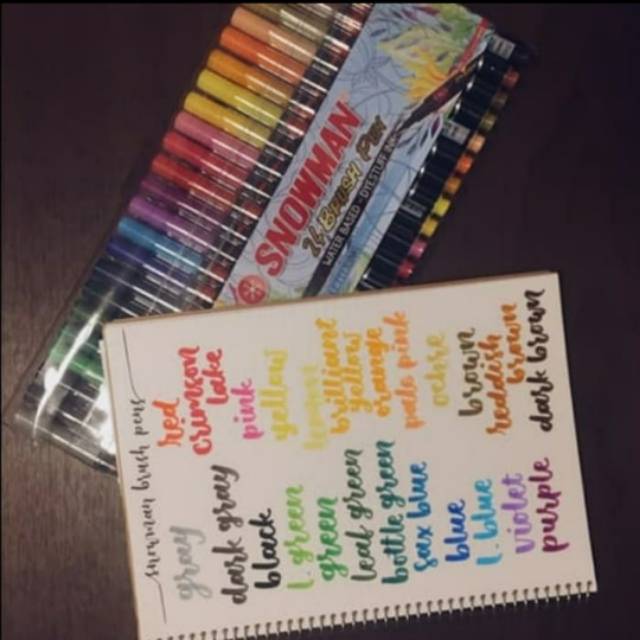 SNOWMAN
24 BRUSH Pen
WATER BASED
snowman brush pens
red
crimson
lake
pink
yellow
lemon
brilliant
yellow
orange
pale pink
ochre
brown
reddish
brown
dark brown
gray
dark gray
black
l. green
green
leaf green
bottle green
sax blue
blue
l. blue
violet
purple